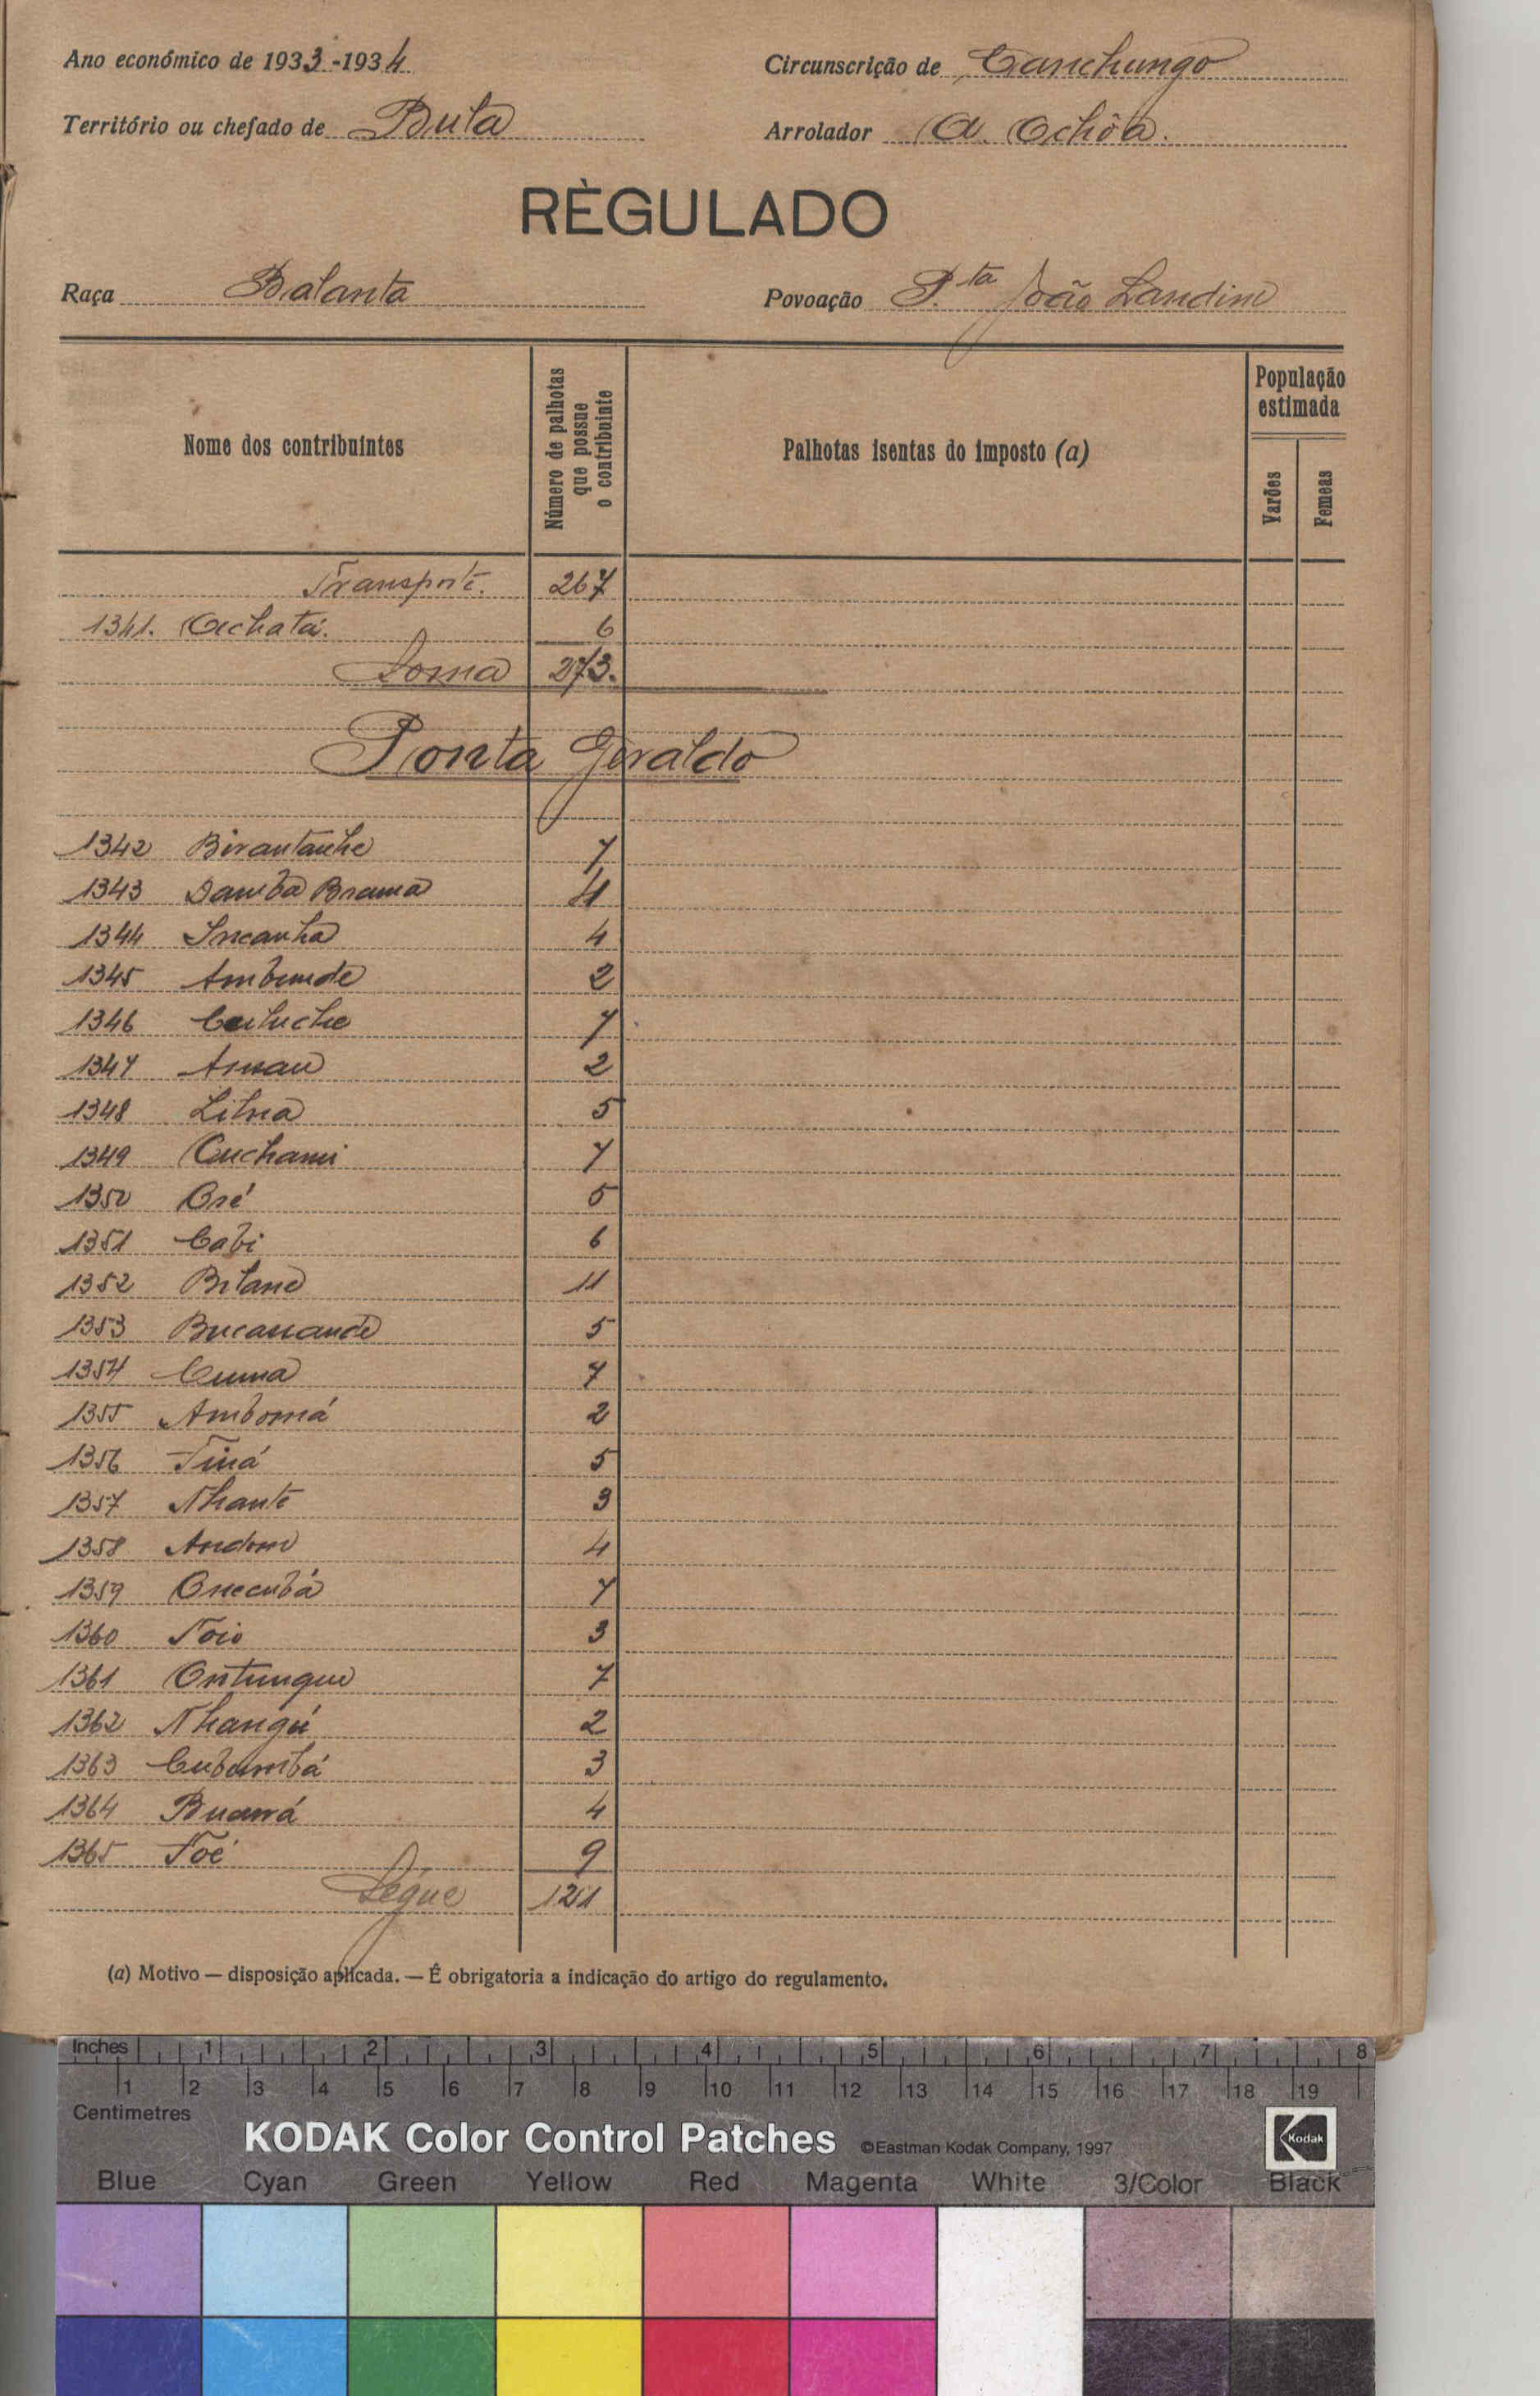 Ano económico de 1933-1934
Circunscrição de Canchungo
Território ou chefado de Bula
Arrolador A. Ochôa.
RÈGULADO
Raça Balanta
Povoação P.ta João Landim
Nome dos contribuintes
Número de palhotas que possue o contribuinte
Palhotas isentas do imposto (a)
População estimada
Varões
Femeas
Transporte. 267
1341. Achatá. 6
Soma 273.
Ponta Geraldo
1342 Birantanhe 7
1343 Samba Brama 4
1344 Incanha 4
1345 Ambunde 2
1346 7
1347 2
1348 5
1349 Cuchami 7
1350 Oré 5
1351 Cabi 6
1352 11
1353 5
1354 Cuma 7
1355 Ambomá 2
1356 Tiná 5
1357 Nhante 3
1358 Andom 4
1359 Onecubá 7
1360 Toio 3
1361 Ontungue 7
1362 Nhangú 2
1363 Cubambá 3
1364 4
1365 Toé 9
Segue 121
(a) Motivo — disposição aplicada. — É obrigatoria a indicação do artigo do regulamento.
Inches 1 2 3 4 5 6 7 8
1 2 3 4 5 6 7 8 9 10 11 12 13 14 15 16 17 18 19
Centimetres
KODAK Color Control Patches ©Eastman Kodak Company, 1997 Kodak
Blue Cyan Green Yellow Red Magenta White 3/Color Black